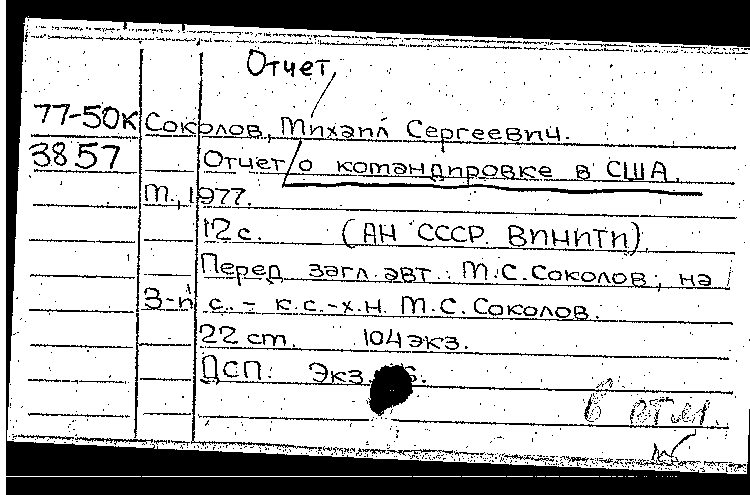 Отчет
77-50к Соколов, Михаил Сергеевич.
3857 Отчет о командировке в США.
М., 1977.
12 с. (АН СССР. ВИНИТИ).
Перед загл. авт.: М.С. Соколов; на
3-й с. - к.с.-х.н. М.С. Соколов.
22 см. 104 экз.
ДСП: Экз.
в